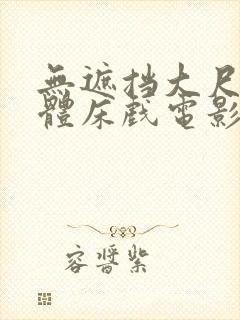 無遮挡大尺
體床戲電影
容醬紫